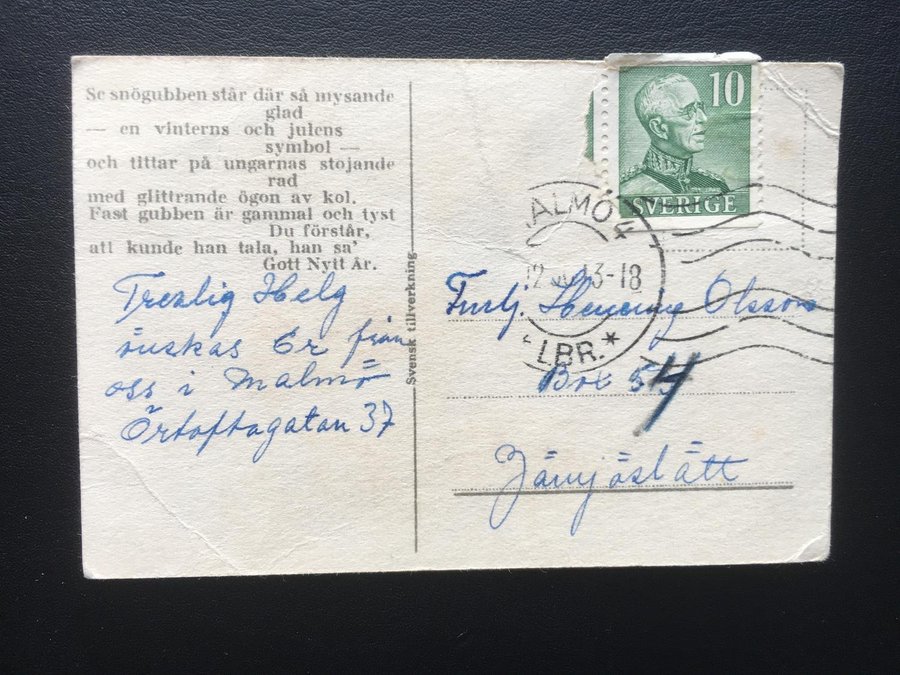 Se snögubben står där så mysande
glad
— en vinterns och julens
symbol —
och tittar på ungarnas stojande
rad
med glittrande ögon av kol.
Fast gubben är gammal och tyst
Du förstår,
att kunde han tala, han sa'
Gott Nytt År.
Trevlig Helg
önskas Er från
oss i Malmö
Örtoftagatan 37
Svensk tillverkning
10
SVERIGE
MALMÖ 4
-18
LBR.
Henning Olsson
Box 54
Jämjöslätt